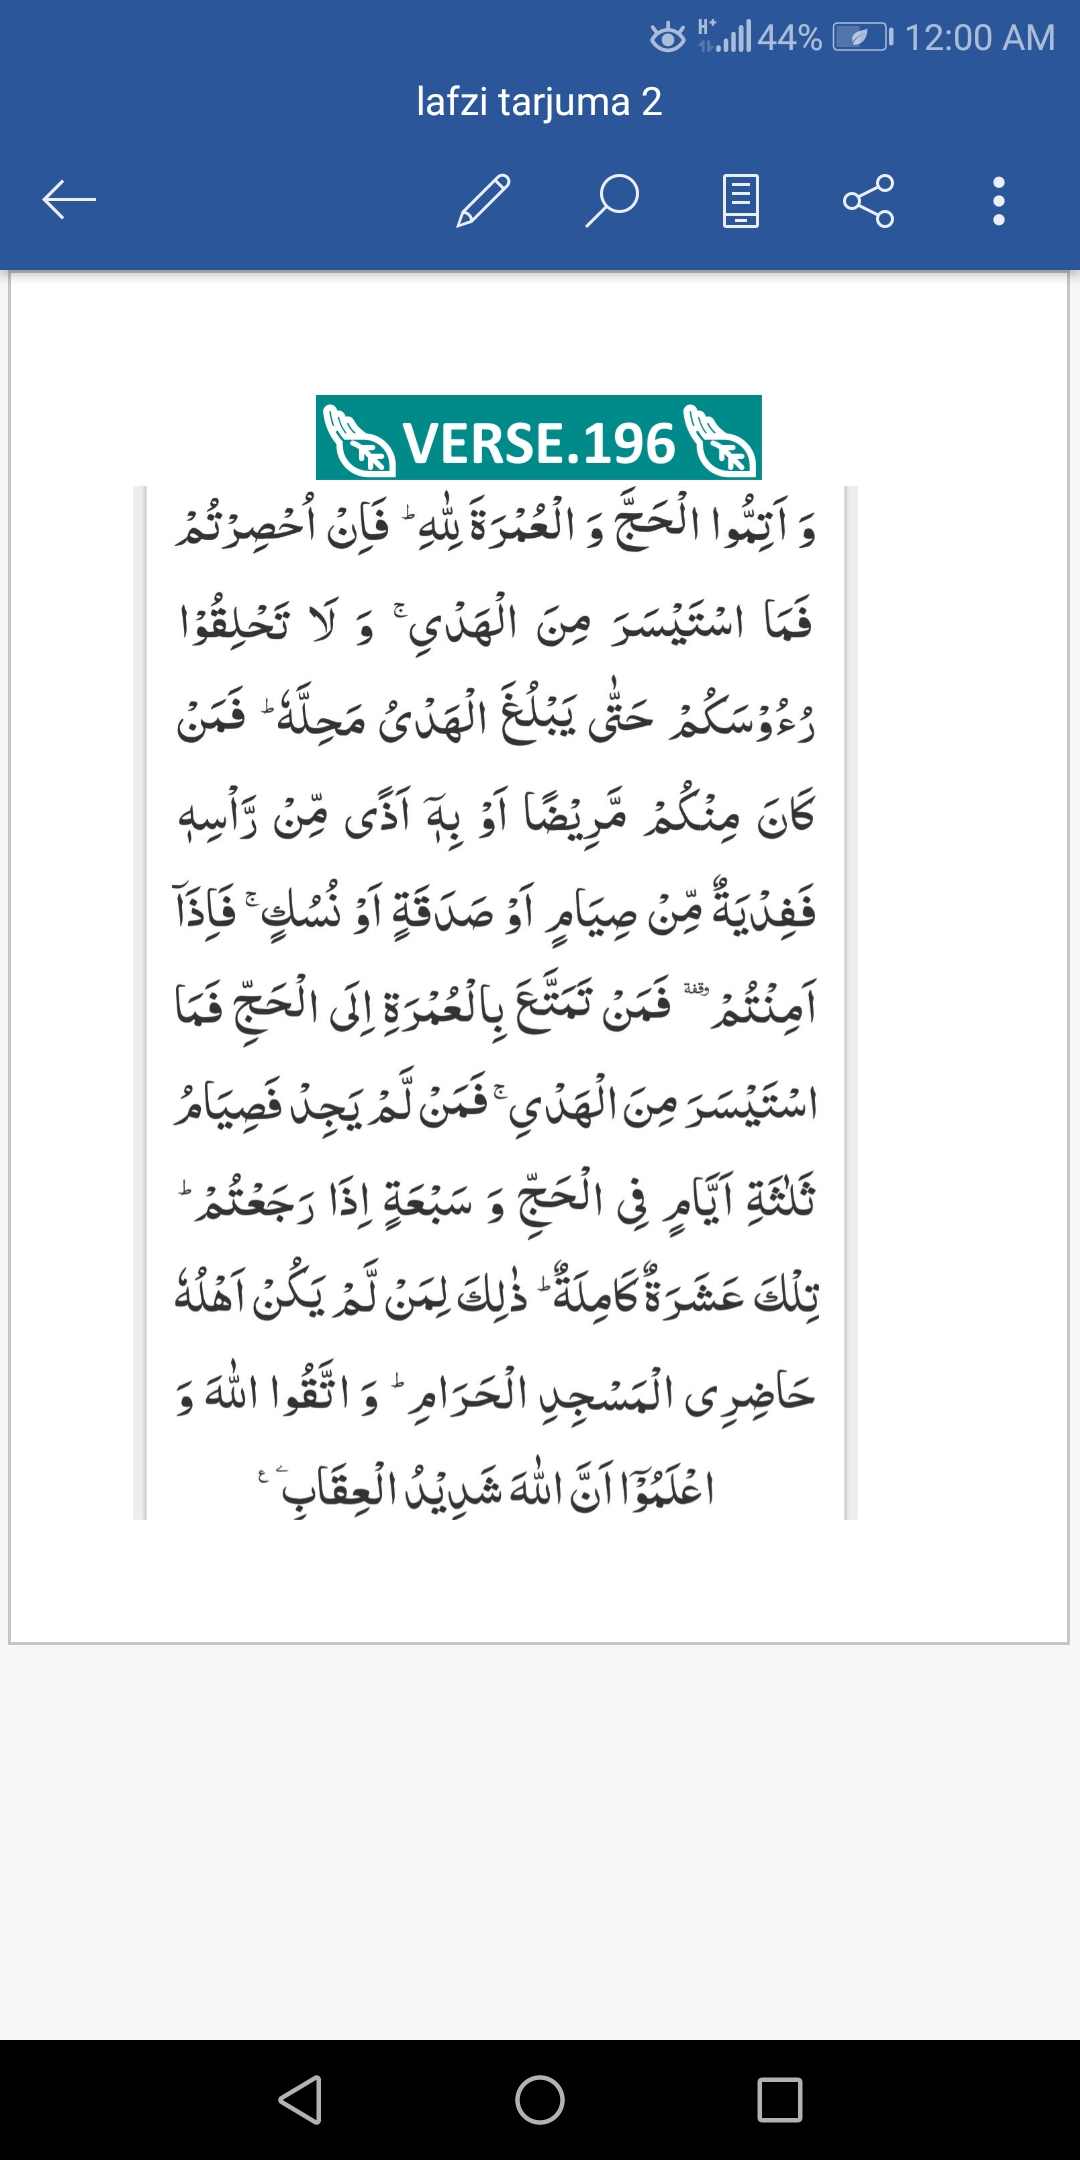 44% 12:00 AM
lafzi tarjuma 2
VERSE.196
وَ اَتِمُّوا الْحَجَّ وَ الْعُمْرَةَ لِلّٰهِ ؕ فَاِنْ اُحْصِرْتُمْ
فَمَا اسْتَیْسَرَ مِنَ الْهَدْیِ ۚ وَ لَا تَحْلِقُوْا
رُءُوْسَكُمْ حَتّٰی یَبْلُغَ الْهَدْیُ مَحِلَّهٗ ؕ فَمَنْ
كَانَ مِنْكُمْ مَّرِیْضًا اَوْ بِهٖۤ اَذًی مِّنْ رَّاْسِهٖ
فَفِدْیَةٌ مِّنْ صِیَامٍ اَوْ صَدَقَةٍ اَوْ نُسُكٍ ۚ فَاِذَاۤ
اَمِنْتُمْ وقفة فَمَنْ تَمَتَّعَ بِالْعُمْرَةِ اِلَی الْحَجِّ فَمَا
اسْتَیْسَرَ مِنَ الْهَدْیِ ۚ فَمَنْ لَّمْ یَجِدْ فَصِیَامُ
ثَلٰثَةِ اَیَّامٍ فِی الْحَجِّ وَ سَبْعَةٍ اِذَا رَجَعْتُمْ ؕ
تِلْكَ عَشَرَةٌ كَامِلَةٌ ؕ ذٰلِكَ لِمَنْ لَّمْ یَكُنْ اَهْلُهٗ
حَاضِرِی الْمَسْجِدِ الْحَرَامِ ؕ وَ اتَّقُوا اللّٰهَ وَ
اعْلَمُوْۤا اَنَّ اللّٰهَ شَدِیْدُ الْعِقَابِ ع